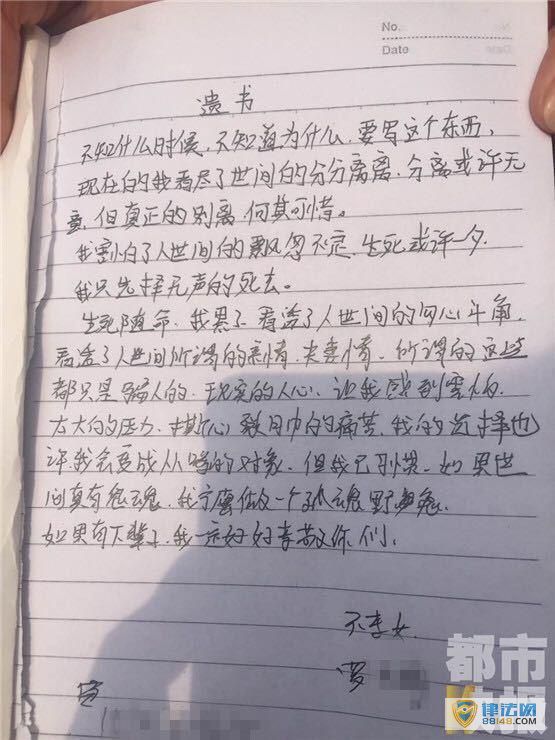 No.
Date
遗书
不知什么时候,不知道为什么,要写这个东西,
现在的我看尽了世间的分分离离,分离或许无
意,但真正的别离何其可惜。
我害怕了人世间的飘忽不定,生死或许一夕,
我只选择无声的死去。
生死随命,我累了,看透了人世间的勾心斗角,
看透了人世间所谓的亲情,夫妻情,所谓的这些
都只是骗人的,现实的人心,让我感到害怕,
太大的压力,撕心裂肺的痛苦,我的选择也
许我会变成从的对象,但我已习惯,如果世
间真有鬼魂,我宁愿做一个孤魂野鬼,
如果有下辈子,我一定好好孝敬你们。
不孝女
罗
都市
快报
律法网
88148.com